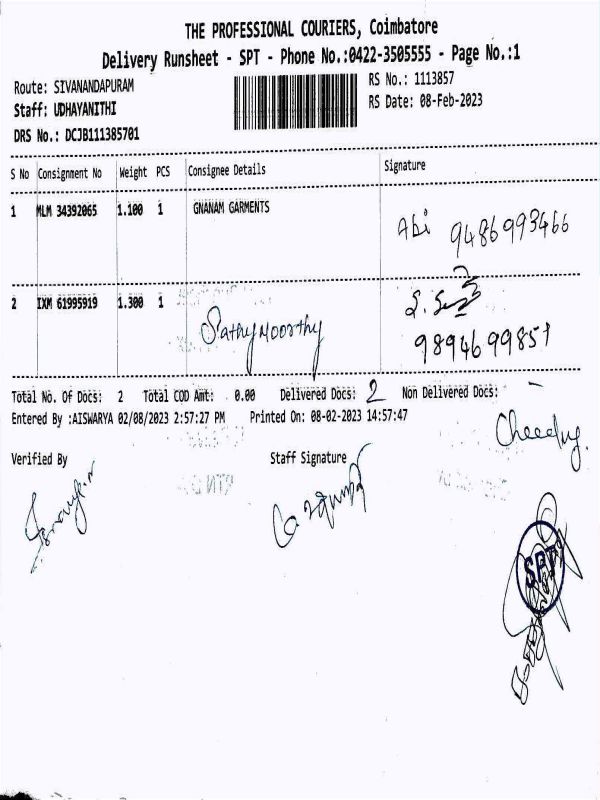 THE PROFESSIONAL COURIERS, Coimbatore
Delivery Runsheet - SPT - Phone No.:0422-3505555 - Page No.:1
Route: SIVANANDAPURAM
RS No.: 1113857
Staff: UDHAYANITHI
RS Date: 08-Feb-2023
DRS No.: DCJB111385701
S No Consignment No Weight PCS Consignee Details Signature
1 MLM 34392065 1.100 1 GNANAM GARMENTS
Abi 9486993466
2 IXM 61995919 1.300 1
Sathymoorthy
9894699851
Total No. Of Docs: 2 Total COD Amt: 0.00 Delivered Docs: 2 Non Delivered Docs: -
Entered By :AISWARYA 02/08/2023 2:57:27 PM Printed On: 08-02-2023 14:57:47
Verified By Staff Signature
SPT